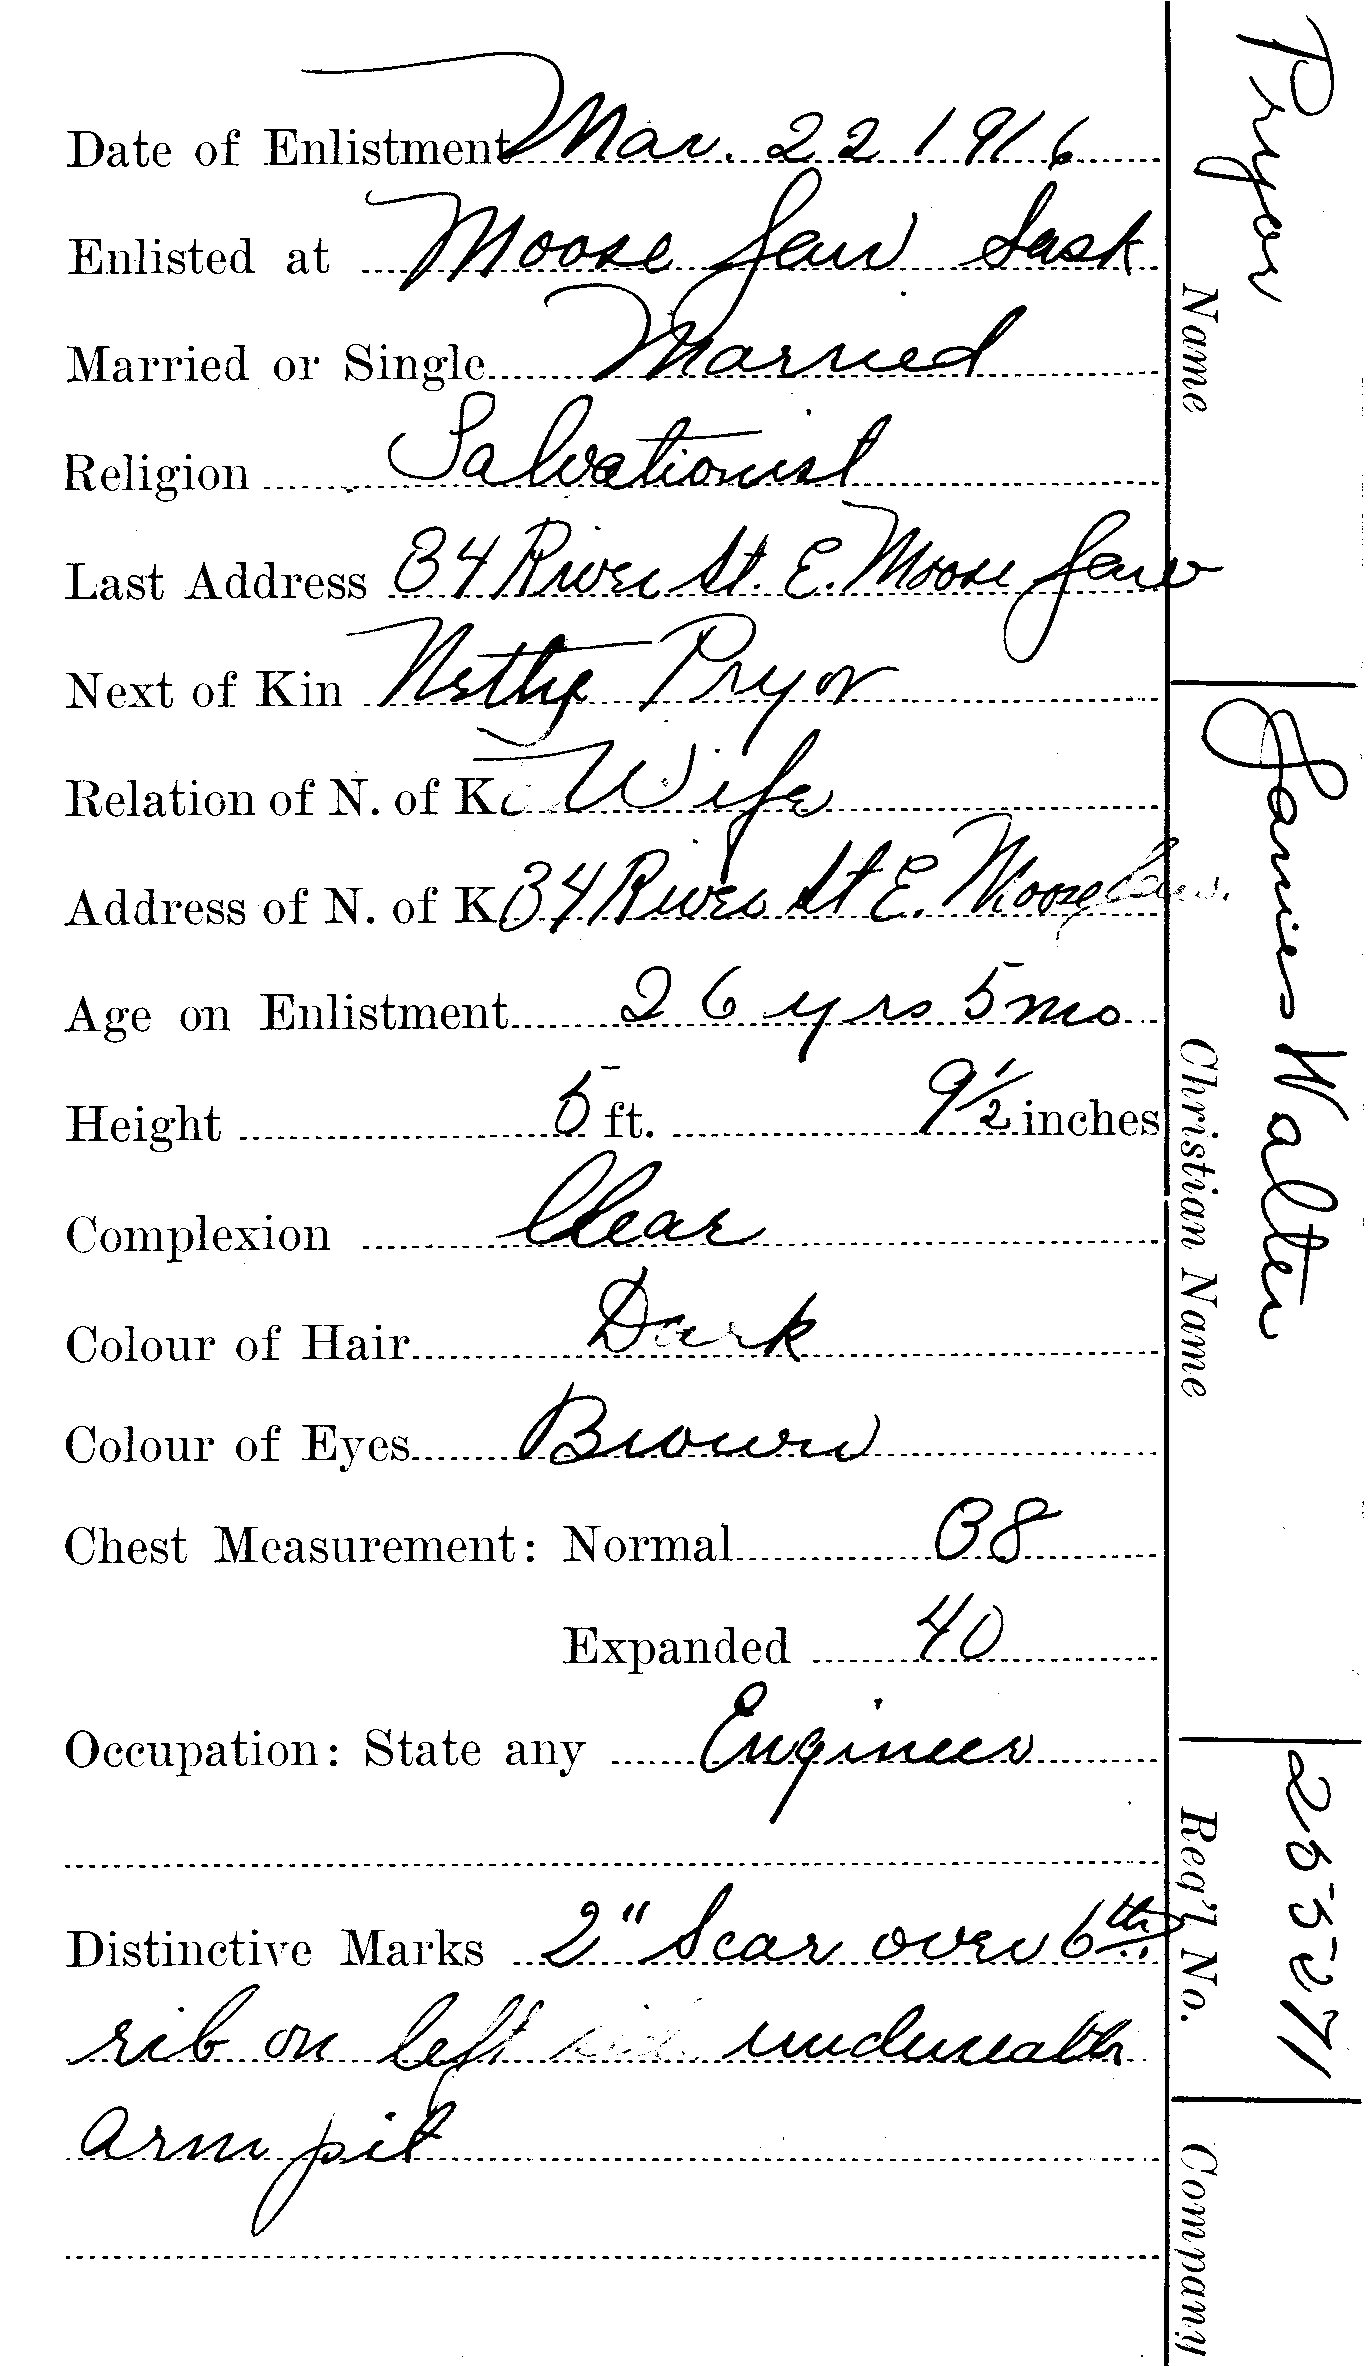 Date of Enlistment Mar. 22 1916
Enlisted at Moose Jaw Sask
Married or Single Married
Religion Salvationist
Last Address 34 River St. E. Moose Jaw
Next of Kin Nettie Pryor
Relation of N. of K. Wife
Address of N. of K 34 River St E. Moose Jaw.
Age on Enlistment 26 yrs 5 mo
Height 5 ft. 9½ inches
Complexion Clear
Colour of Hair Dark
Colour of Eyes Brown
Chest Measurement: Normal 38
Expanded 40
Occupation: State any Engineer
Distinctive Marks 2" Scar over 6th
rib on left side underneath
arm pit
Pryor
Name
James Walter
Christian Name
255271
Reg'l No.
Company